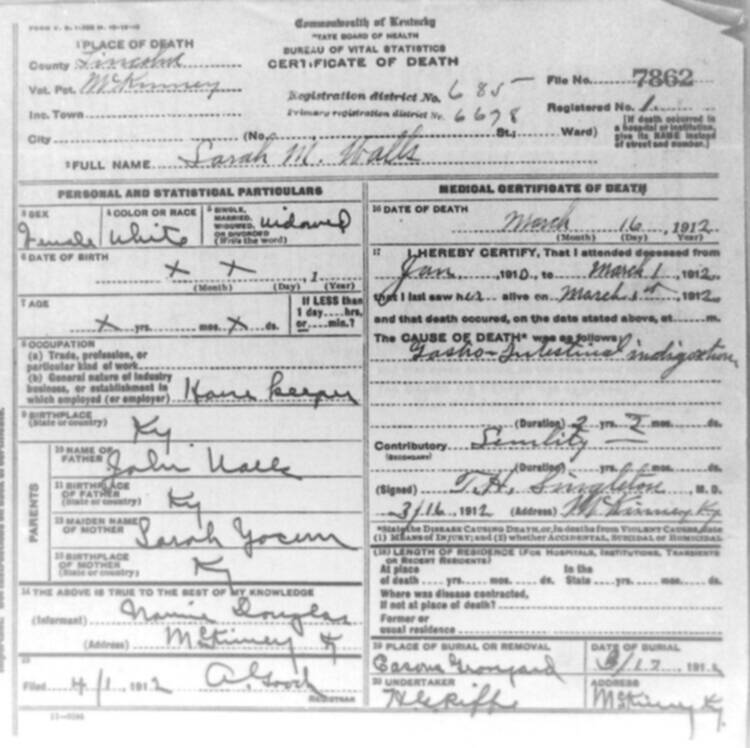 Commonwealth of Kentucky
STATE BOARD OF HEALTH
BUREAU OF VITAL STATISTICS
CERTIFICATE OF DEATH
1 PLACE OF DEATH
County Lincoln
Vot. Pct. McKinney
Inc. Town
City (No. St.; Ward)
Registration district No. 685
Primary registration district No. 6678
File No. 7862
Registered No. 1
[If death occurred in
a hospital or institution,
give its NAME instead
of street and number.]
2 FULL NAME Sarah M. Walls
PERSONAL AND STATISTICAL PARTICULARS
3 SEX
Female
4 COLOR OR RACE
White
5 SINGLE,
MARRIED,
WIDOWED,
OR DIVORCED
(Write the word)
widowed
6 DATE OF BIRTH
x x , 1
(Month) (Day) (Year)
7 AGE
x yrs. mos. x ds.
If LESS than
1 day....hrs,
or....min.?
8 OCCUPATION
(a) Trade, profession, or
particular kind of work
(b) General nature of industry
business, or establishment in
which employed (or employer) House keeper
9 BIRTHPLACE
(State or country)
Ky
PARENTS
10 NAME OF
FATHER John
11 BIRTHPLACE
OF FATHER
(State or country)
Ky
12 MAIDEN NAME
OF MOTHER Sarah Yocum
13 BIRTHPLACE
OF MOTHER
(State or country)
Ky
14 THE ABOVE IS TRUE TO THE BEST OF MY KNOWLEDGE
(Informant) Nannie Douglas
(Address) McKinney Ky
15
Filed 4/1 1912 A. Good
REGISTRAR
MEDICAL CERTIFICATE OF DEATH
16 DATE OF DEATH
March 16, 1912
(Month) (Day) (Year)
17 I HEREBY CERTIFY, That I attended deceased from
Jan, 1910, to March 1, 1912,
that I last saw her alive on March 1st, 1912,
and that death occured, on the date stated above, at m.
The CAUSE OF DEATH* was as follows:
Gastro-Intestinal indigestion
(Duration) 2 yrs. 2 mos. ds.
Contributory Senility
(SECONDARY)
(Duration) yrs. mos. ds.
(Signed) T. H. Singleton, M. D.
3/16, 1912 (Address) McKinney Ky
*State the DISEASE CAUSING DEATH, or, in deaths from VIOLENT CAUSES, state
(1) MEANS OF INJURY; and (2) whether ACCIDENTAL, SUICIDAL or HOMICIDAL
(18) LENGTH OF RESIDENCE (FOR HOSPITALS, INSTITUTIONS, TRANSIENTS
OR RECENT RESIDENTS)
At place
of death yrs. mos. ds.
In the
State yrs. mos. ds.
Where was disease contracted,
If not at place of death?
Former or
usual residence
19 PLACE OF BURIAL OR REMOVAL
DATE OF BURIAL
3/17, 1912
20 UNDERTAKER
ADDRESS
McKinney Ky.